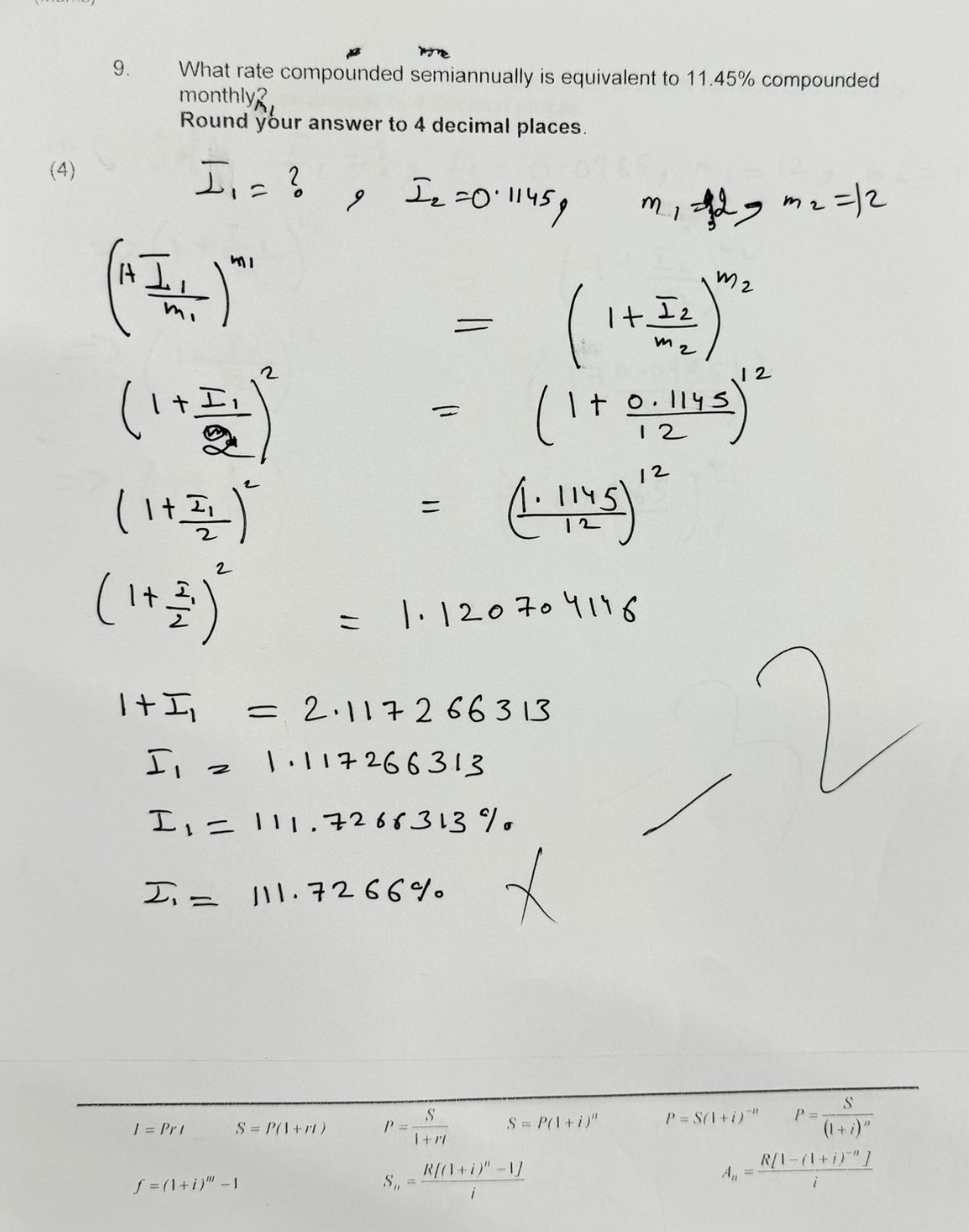 9. What rate compounded semiannually is equivalent to 11.45% compounded
monthly?
Round your answer to 4 decimal places.
(4)
I₁ = ? , I₂ = 0.1145, m₁ = 2, m₂ = 12
(1+ I₁/m₁)^m₁ = (1 + I₂/m₂)^m₂
(1 + I₁/2)^2 = (1 + 0.1145/12)^12
(1 + I₁/2)^2 = (1.1145/12)^12
(1 + I₁/2)^2 = 1.120704146
1 + I₁ = 2.117266313
I₁ = 1.117266313
I₁ = 111.7266313%
I₁ = 111.7266%
-2
I = Prt S = P(1+rt) P = S/(1+rt) S = P(1+i)^n P = S(1+i)^-n P = S/(1+i)^n
f = (1+i)^m - 1 Sₙ = R[(1+i)^n - 1]/i Aₙ = R[1-(1+i)^-n]/i